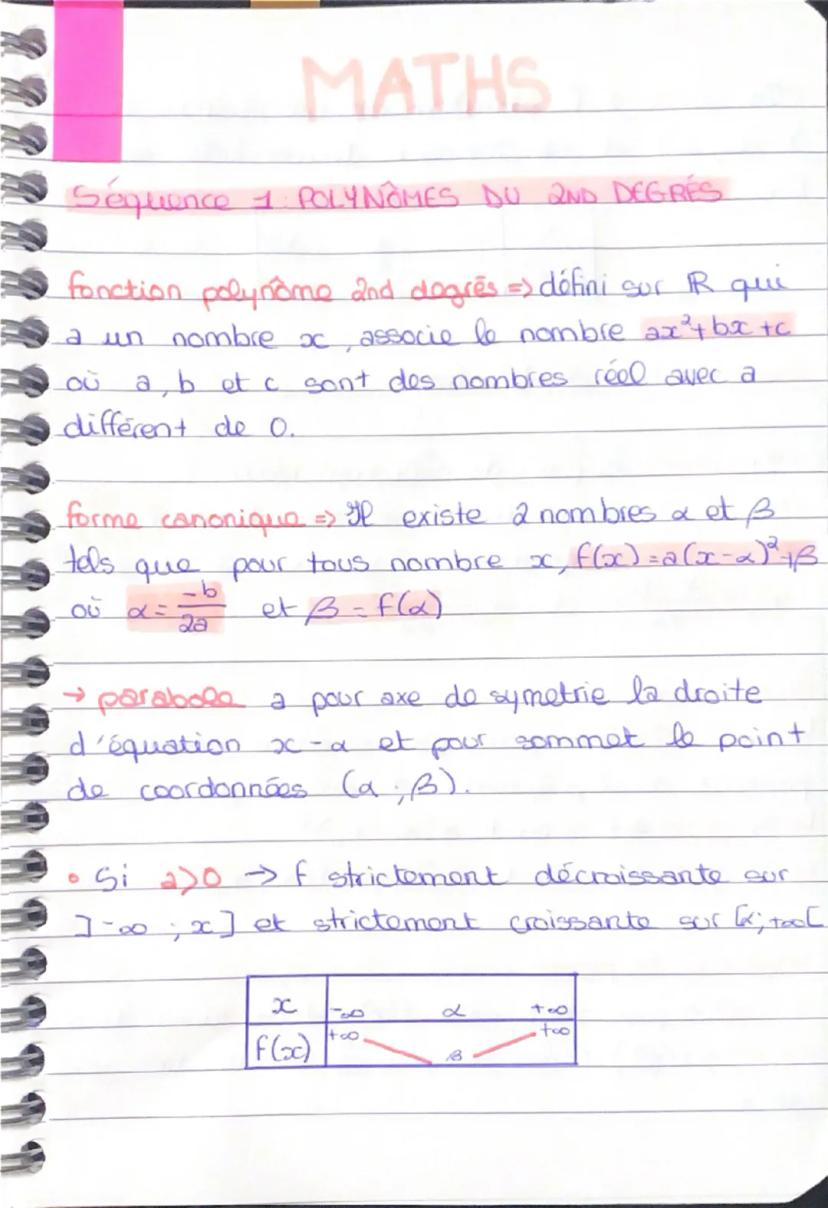 MATHS
Séquence 1 : POLYNÔMES DU 2ND DEGRÉS
fonction polynôme 2nd degrés => défini sur ℝ qui
a un nombre x, associe le nombre ax²+bx+c
où a, b et c sont des nombres réel avec a
différent de 0.
forme canonique => Il existe 2 nombres α et β
tels que pour tous nombre x, f(x)=a(x-α)²+β
où α = -b/2a et β = f(α)
→ parabole a pour axe de symetrie la droite
d'équation x-α et pour sommet le point
de coordonnées (α ; β).
• Si a>0 → f strictement décroissante sur
]-∞ ; x] et strictement croissante sur [α; +∞[
x -∞ α +∞
f(x) +∞ β +∞